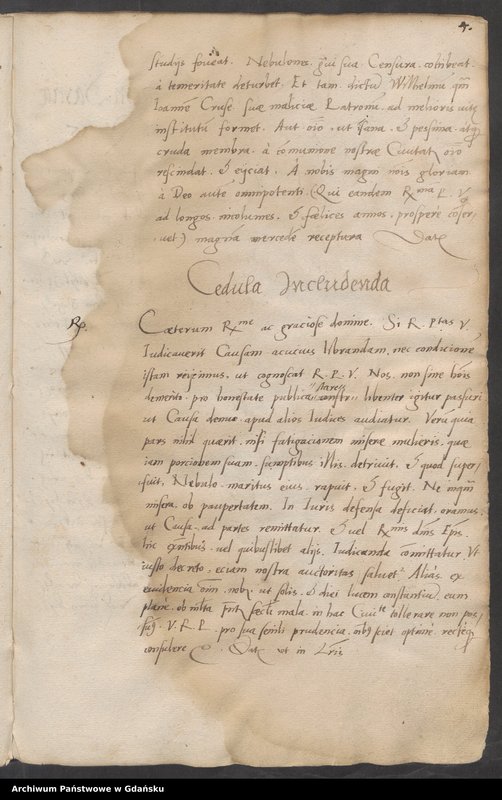 4.
studijs foveat. Nebulones. qui sua Censura. cohibeat.
à temeritate deturbet. Et tam dictu Wilhelmu qm
Ioanne Cruse. suæ maliciæ Latronu. ad melioris vitę
instituti formet. Aut oio. ut & pessima atq
cruda membra. à comunione nostræ Civitat oio
rescindat. & eijciat. A nobis magni nois gloriam
à Deo aute omnipotenti (Qui eandem Rma P. V.
ad longos. incolumes. & fœlices annos. prospere coser
vet) magna mercede receptura Dat
Cedula Includenda
Rp. Cæterum Rme ac graciose domine. Si R. Ptas V.
Iudicaverit Causam librandam. nec condicione
istam reijcimus. ut cognoscat R. P. V. Nos. non sine bois
demerito. pro honestate publica libenter igitur
ut Causa denuo. apud alios Iudices audiatur. Veru quia
pars nihil quærit. nisi fatigacionem miseræ mulieris. quæ
iam porcionem suam. sumptibus illis. detrivit. & quod super
fuit. Nebulo. maritus eius. rapuit. & fugit. Ne
misera. ob paupertatem. In Iuris defensa deficiat. oramus.
ut Causa. ad partes remittatur. & vel Rmus dns Eps.
hic vel quibuslibet alijs. Iudicanda comittatur. Vt
iusto decreto. eciam nostra auctoritas salvet. Aliàs. ex
evidencia ut solis. & diei lucem constantiu. eum
plane. ob mlta mala. in hac Civite tollerare non pos
V. R. P. pro sua senili prudencia. scict optime. recteq
consulere Dat ut in Lris
Archiwum Państwowe w Gdańsku